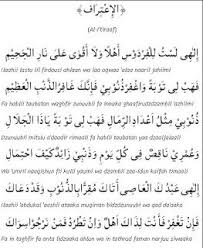 ﴿ اَلْإِعْتِرَافُ ﴾
(Al-I'tiraaf)
إِلٰهِي لَسْتُ لِلْفِرْدَوْسِ أَهْلًا وَلَا أَقْوَى عَلَى نَارِ الْجَحِيْمِ
Ilaahii lastu lil firdausi ahlan wa laa aqwaa 'alaa naaril jahiimi
فَهَبْ لِي تَوْبَةً وَاغْفِرْ ذُنُوْبِي فَإِنَّكَ غَافِرُ الذَّنْبِ الْعَظِيْمِ
Fa hablii taubatan waghfir zunuubii fa innaka ghaafirudzdzambil 'azhiimi
ذُنُوْبِي مِثْلُ أَعْدَادِ الرِّمَالِ فَهَبْ لِي تَوْبَةً يَا ذَا الْجَلَالِ
Dzunuubii mitslu a'daadir rimaali fa hablii taubatan yaa dzaaljalaali
وَعُمْرِي نَاقِصٌ فِي كُلِّ يَوْمٍ وَذَنْبِي زَائِدٌ كَيْفَ احْتِمَالِ
Wa 'umrii naaqishun fii kulli yaumi wa dzambii zaa-idun kaifah timaali
إِلٰهِي عَبْدُكَ الْعَاصِي أَتَاكَ مُقِرًّا بِالذُّنُوْبِ وَقَدْ دَعَاكَ
Ilaahii 'abdukal 'aashii ataaka muqirran bidzdzunuubi wa qad da'aaka
فَإِنْ تَغْفِرْ فَأَنْتَ لِذَاكَ أَهْلٌ وَإِنْ تَطْرُدْ فَمَنْ نَرْجُو سِوَاكَ
Fa in taghfir fa anta lidzaaka ahlun wa in tathrud faman narjuu siwaaka